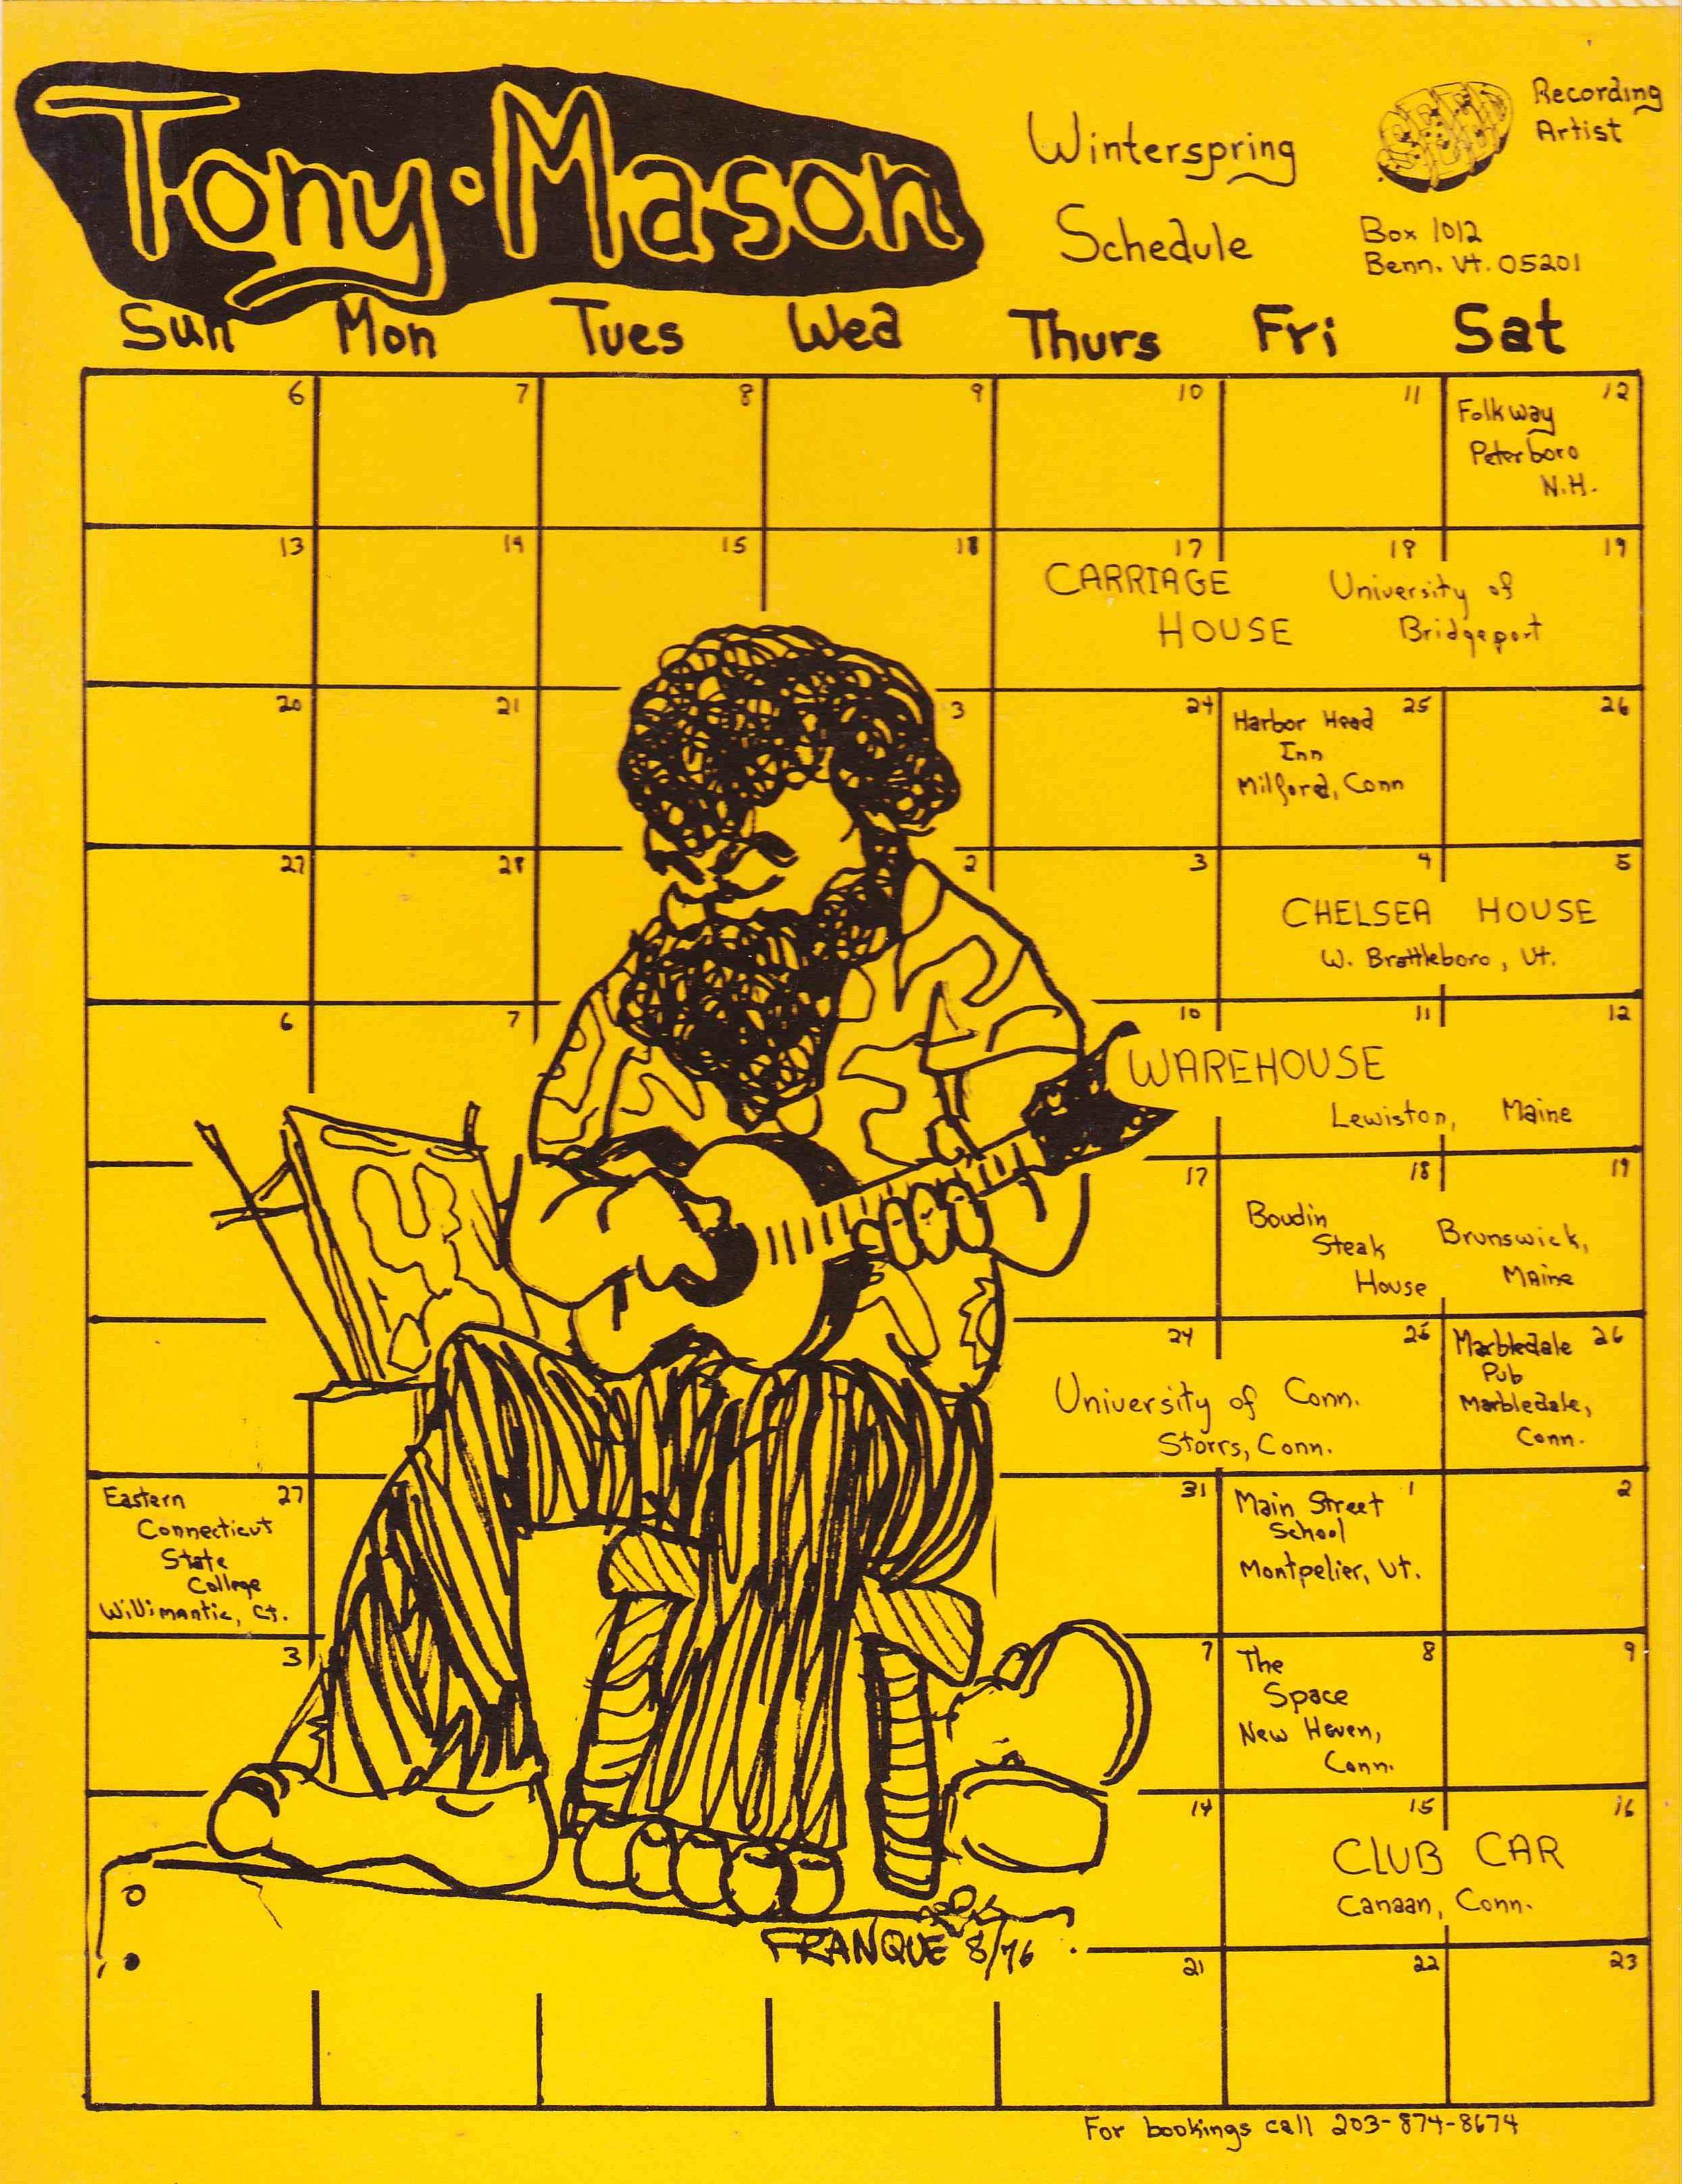 Tony · Mason
Winterspring
Schedule
Recording
Artist
Box 1012
Benn. Vt. 05201
Sun Mon Tues Wed Thurs Fri Sat
6 7 8 9 10 11 12
Folkway
Peterboro
N.H.
13 14 15 17 18 19
CARRIAGE
HOUSE
University of
Bridgeport
20 21 3 24 25 26
Harbor Head
Inn
Milford, Conn
27 28 2 3 4 5
CHELSEA HOUSE
W. Brattleboro, Vt.
6 7 10 11 12
WAREHOUSE
Lewiston, Maine
17 18 19
Boudin
Steak
House
Brunswick,
Maine
24 25 26
University of Conn.
Storrs, Conn.
Marbledale
Pub
Marbledale,
Conn.
27 31 1 2
Eastern
Connecticut
State
College
Willimantic, Ct.
Main Street
School
Montpelier, Vt.
3 7 8 9
The
Space
New Haven,
Conn.
14 15 16
CLUB CAR
Canaan, Conn.
FRANQUE 8/76
21 22 23
For bookings call 203-874-8674